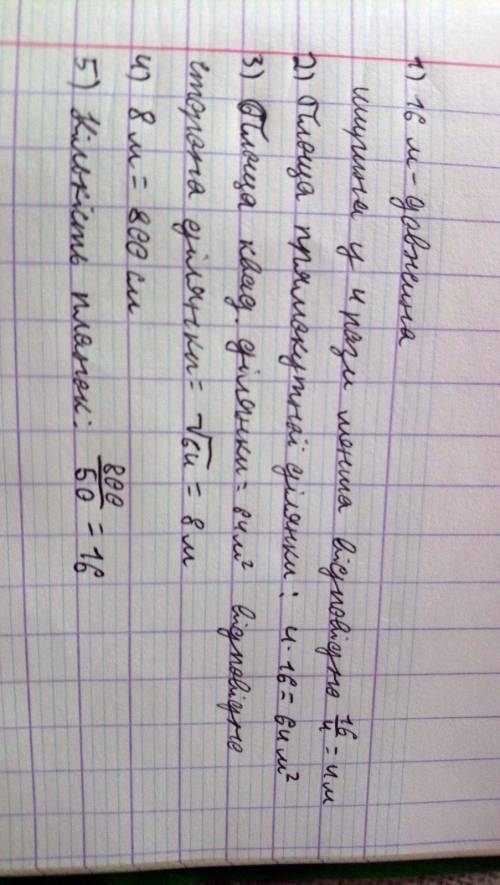 1) 16 м - довжина
ширина у 4 рази менша відповідно 16/4 = 4 м
2) Площа прямокутної ділянки: 4 · 16 = 64 м²
3) Площа квад. ділянки = 64 м² відповідно
сторона ділянки = √64 = 8 м
4) 8 м = 800 см
5) Кількість планок: 800/50 = 16